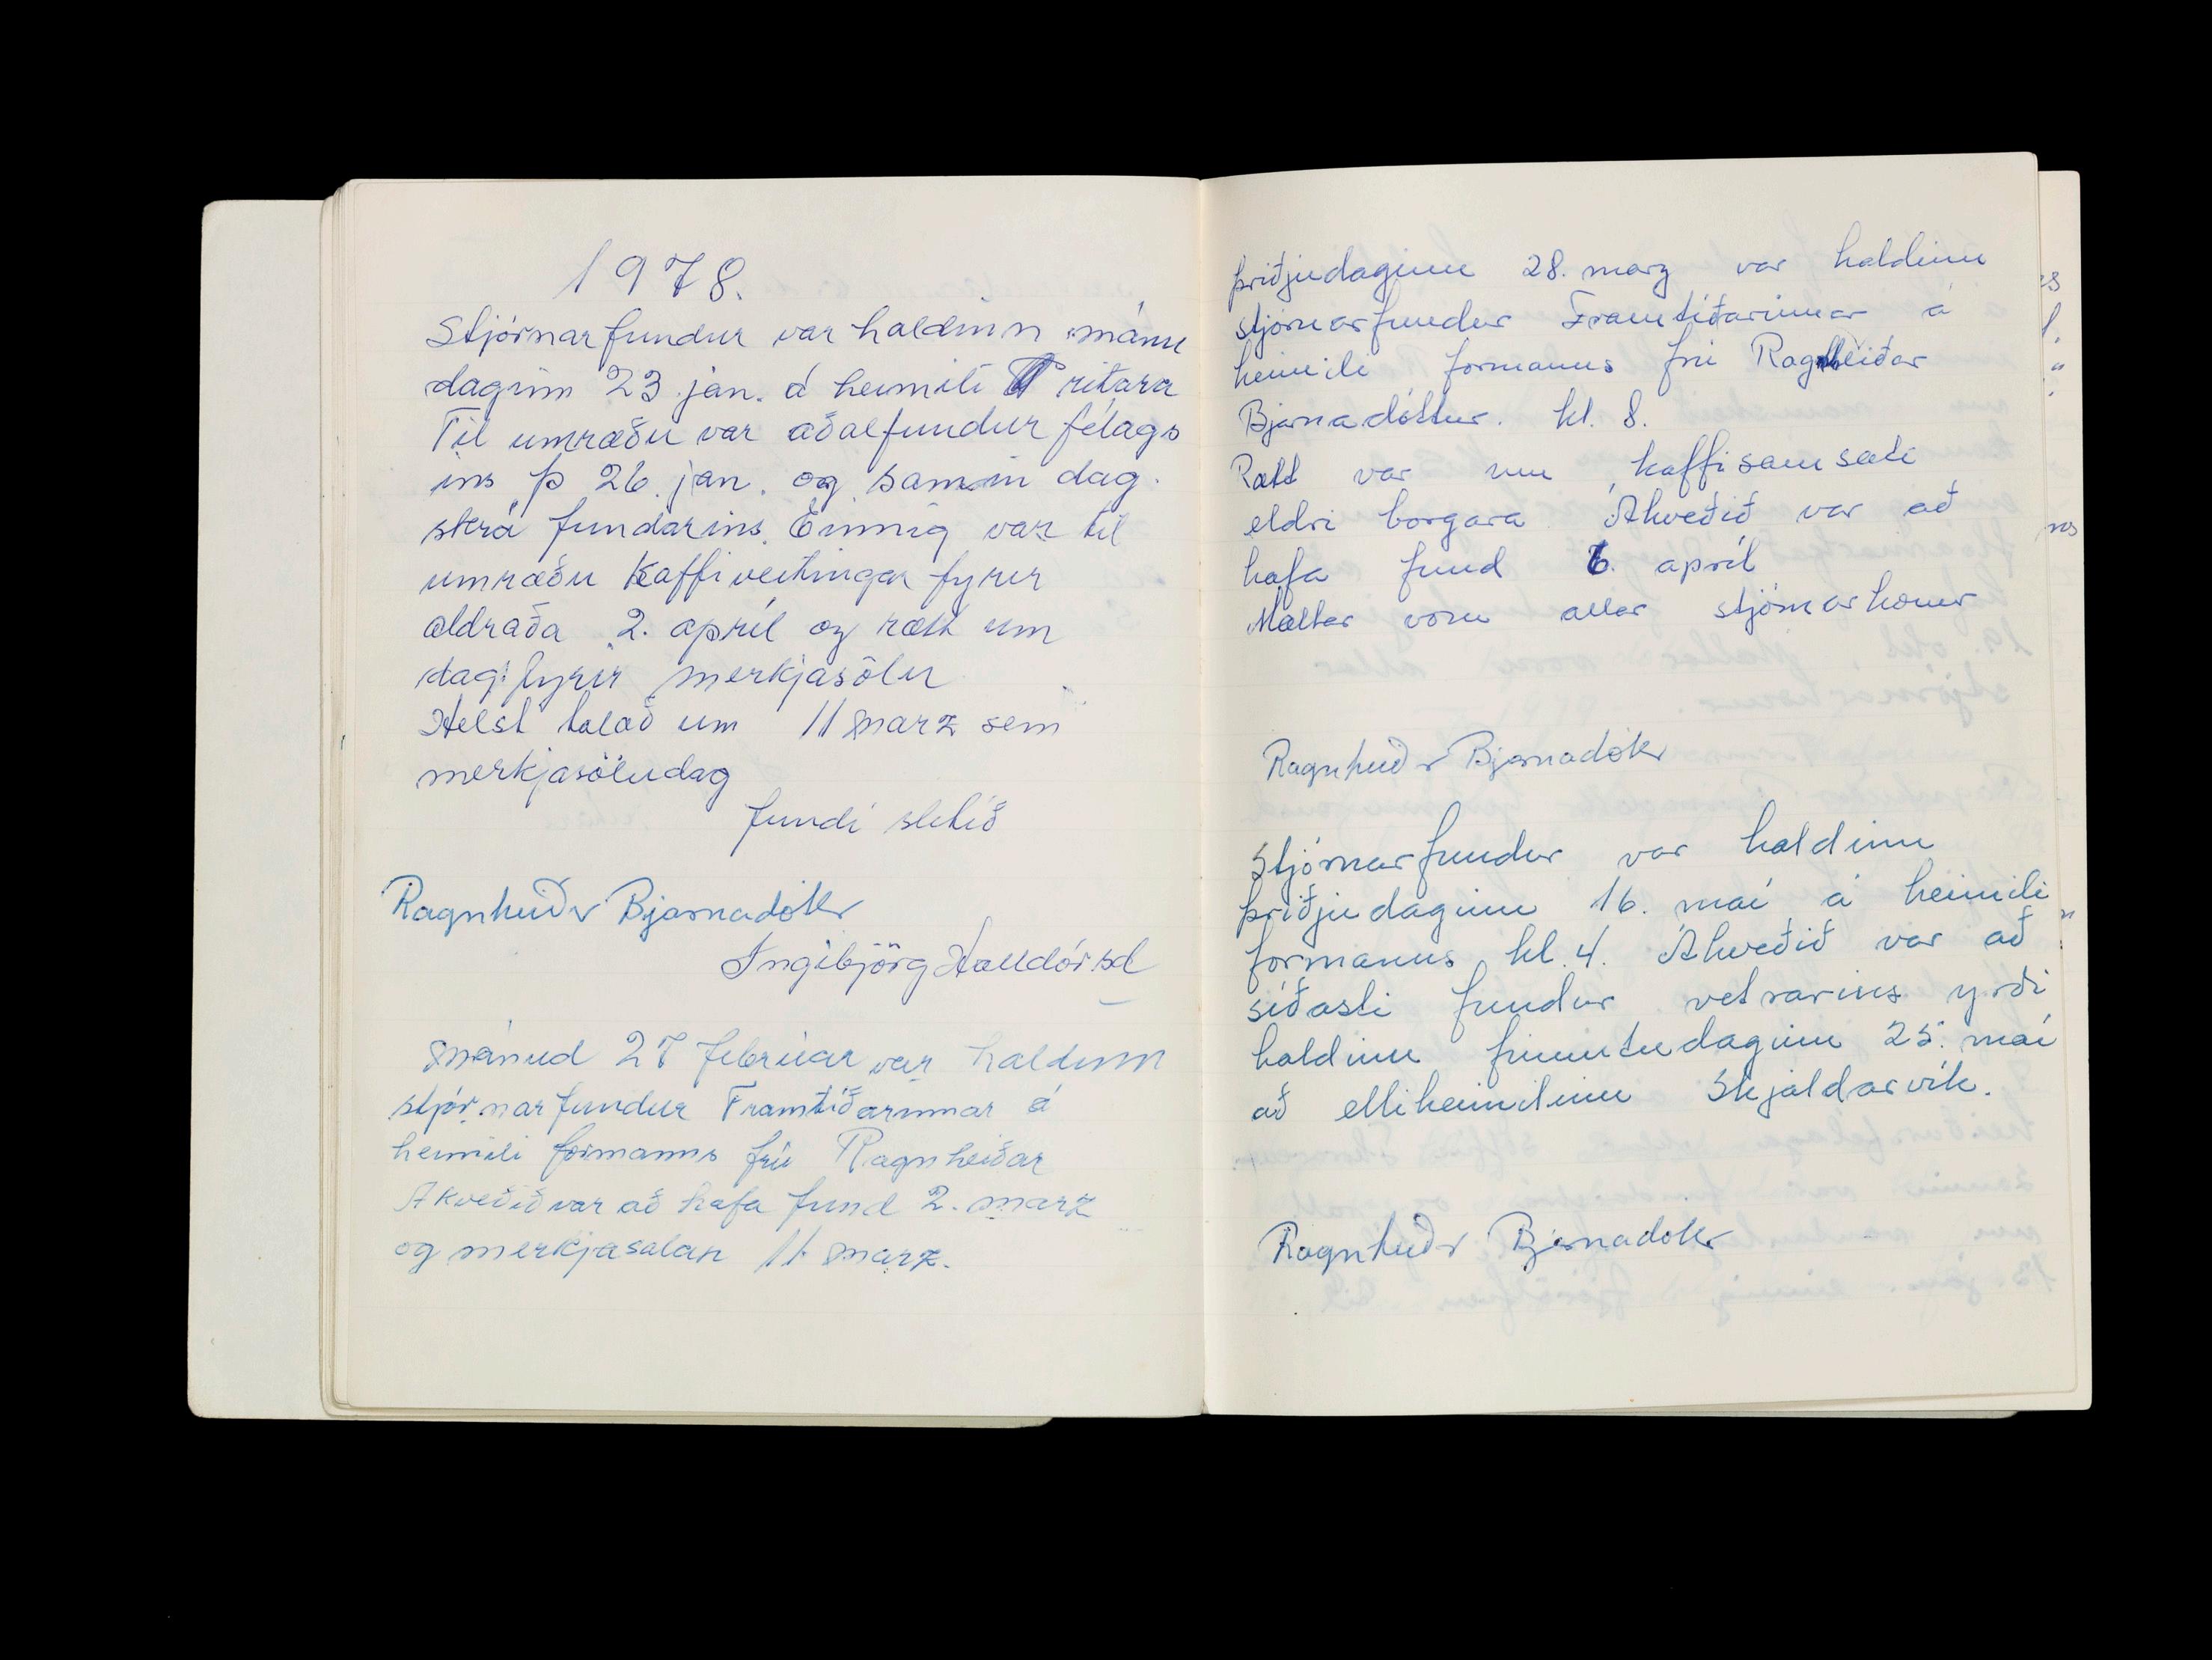 1978.
Stjórnarfundur var haldinn mánu
daginn 23 jan. á heimili ritara
Til umræðu var aðalfundur félags
ins þ 26. jan. og samin dag.
skrá fundarins. Einnig var til
umræðu Kaffiveitingar fyrir
aldraða 2. apríl og rætt um
dag fyrir merkjasölu
Helst talað um 11 marz sem
merkjasöludag
fundi slitið
Ragnheiðr Bjarnadóttr
Ingibjörg Halldórsd
Mánud 27 febrúar var haldinn
stjórnarfundur Framtíðarinnar á
heimili formanns frú Ragnheiðar
Akveðið var að hafa fund 2. marz
og merkjasalan 11 marz.
þriðjudaginn 28. marz var haldinn
stjórnarfundur Framtíðarinnar á
heimili formanns frú Ragnheiðar
Bjarnadóttur. kl. 8.
Rætt var um kaffisamsæti
eldri borgara. Ákveðið var að
hafa fund 6. apríl
Mættar voru allar stjórnarkonur
Ragnheiðr Bjarnadóttr
Stjórnarfundur var haldinn
þriðjudaginn 16. maí á heimili
formanns kl. 4. Ákveðið var að
síðasti fundur vetrarins yrði
haldinn fimmtudaginn 25. maí
að elliheimilinu Skjaldarvík.
Ragnheiðr Bjarnadóttr